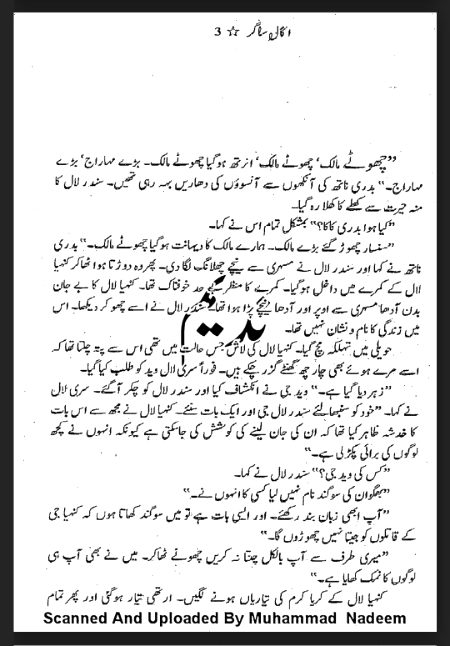 اگالی ساگر ☆ 3
”چھوٹے مالک‘ چھوٹے مالک‘ انرتھ ہوگیا چھوٹے مالک۔ بڑے مہاراج‘ بڑے
مہاراج۔“ بدری ناتھ کی آنکھوں سے آنسوؤں کی دھاریں بہہ رہی تھیں۔ سندر لال کا
منہ حیرت سے کھلے کا کھلا رہ گیا۔
”کیا ہوا بدری کاکا؟“ بمشکل تمام اس نے کہا۔
”سنسار چھوڑ گئے بڑے مالک۔ ہمارے مالک کا دیہانت ہوگیا چھوٹے مالک۔“ بدری
ناتھ نے کہا اور سندر لال نے مسہری سے نیچے چھلانگ لگا دی۔ پھر وہ دوڑتا ہوا ٹھاکر کنہیا
لال کے کمرے میں داخل ہوگیا۔ کمرے کا منظر بے حد خوفناک تھا۔ کنہیا لال کا بے جان
بدن آدھا مسہری سے اوپر اور آدھا نیچے پڑا ہوا تھا۔ سندر لال نے اسے چھو کر دیکھا۔ اس
میں زندگی کا نام و نشان نہیں تھا۔
ندیم
حویلی میں تہلکہ مچ گیا۔ کنہیا لال کی لاش جس حالت میں تھی اس سے پتہ چلتا تھا کہ
اسے مرے ہوئے بھی چار چھ گھنٹے گزر چکے ہیں۔ فوراً سری لال وید کو طلب کیا گیا۔
”زہر دیا گیا ہے۔“ وید جی نے انکشاف کیا اور سندر لال کو چکر آگئے۔ سری لال
نے کہا۔ ”خود کو سنبھالئے سندر لال جی اور ایک بات سنئے۔ کنہیا لال نے مجھ سے اس بات
کا خدشہ ظاہر کیا تھا کہ ان کی جان لینے کی کوشش کی جاسکتی ہے کیونکہ انہوں نے کچھ
لوگوں کی برائی پکڑ لی ہے۔“
”کس کی وید جی؟“ سندر لال نے کہا۔
”بھگوان کی سوگند نام نہیں لیا کسی کا انہوں نے۔“
”آپ ابھی زبان بند رکھئے۔ اور ایسی بات ہے تو میں سوگند کھاتا ہوں کہ کنہیا جی
کے قاتلوں کو جیتا نہیں چھوڑوں گا۔“
”میری طرف سے آپ بالکل چنتا نہ کریں چھوٹے ٹھاکر۔ میں نے بھی آپ ہی
لوگوں کا نمک کھایا ہے۔“
کنہیا لال کے کریا کرم کی تیاریاں ہونے لگیں۔ ارتھی تیار ہوگئی اور پھر تمام
Scanned And Uploaded By Muhammad Nadeem